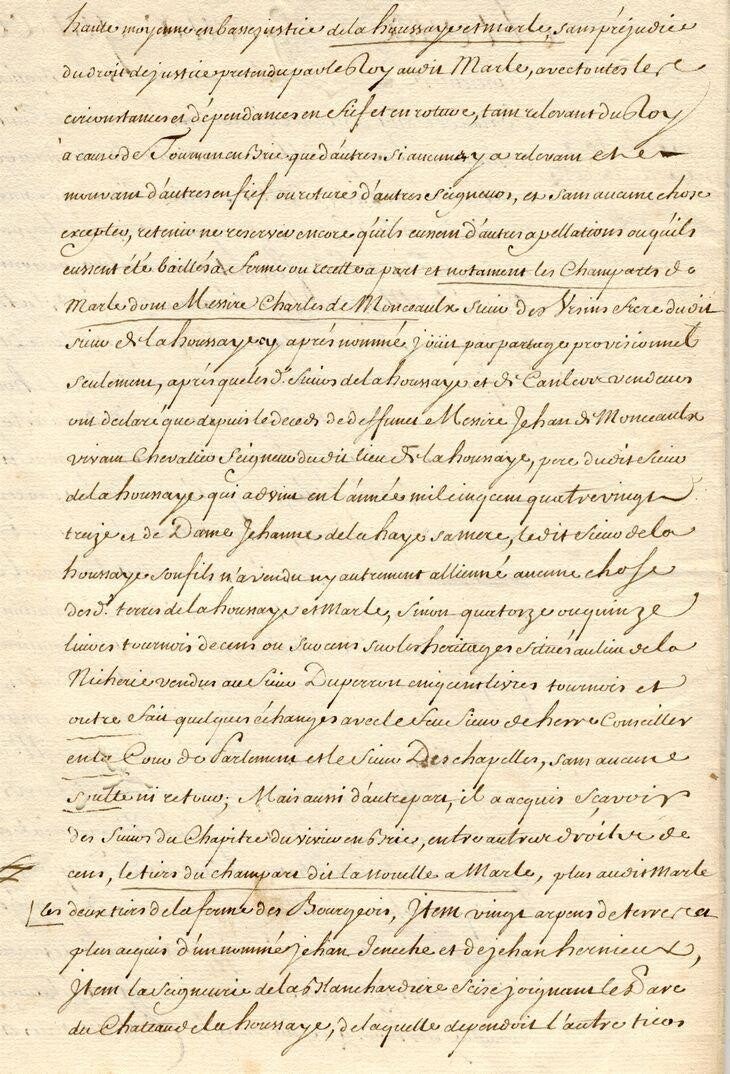 haute moyenne en basse justice de la houssaye et Marle, sans préjudice
du droit de justice pretendu par le Roy audit Marle, avec toutes les
circonstances et dépendances en fief et en roture, tant relevant du Roy
à cause de Tournan en Brie que d'autres si aucune y a relevant et
mouvant d'autres en fief ou roture d'autres seigneurs, et sans aucune chose
excepter, retenir ne reserver encore qu'ils eussent d'autres apellations ou qu'ils
eussent été baillés à ferme ou recette a part et notament les Champarts de
Marle dont Messire Charles de Monceaulx sieur des frere dudit
sieur de la houssaye cy après nommé jouit par partage provisionnel
seulement, après que les d. sieurs de la houssaye et de vendeurs
ont declaré que depuis le deceds de deffunct Messire Jehan de Monceaulx
vivant Chevalier seigneur dudit lieu de la houssaye, pere dudit sieur
de la houssaye qui advint en l'année mil cinq cent quatre vingt
treize et de Dame Jehanne de la haye sa mere, ledit sieur de la
houssaye son fils n'a vendu ny autrement allienné aucune chose
des d. terres de la houssaye et Marle, sinon quatorze ou quinze
livres tournois de cens ou surcens sur les heritages situés au lieu de la
Richerie vendus au sieur Duperron cinq cent livres tournois et
outre fait quelques échanges avec le feu sieur de herre Conseiller
en la Cour de Parlement et le sieur Deschapelles, sans aucune
soulte ni retour; Mais aussi d'autre part, il a acquis sçavoir
des sieurs du Chapitre du vivier en Brie, entre autres droits de
cens, le tiers du champart dit la nouelle a Marle, plus audit Marle
les deux tiers de la ferme des Bourgeois, Item vingt arpens de terre
plus acquis d'un nommé jehan et de jehan hernieux,
Item la seigneurie de la Blanchardiere scise joignant le Parc
du Chateau de la houssaye, de laquelle dependoit l'autre tiers